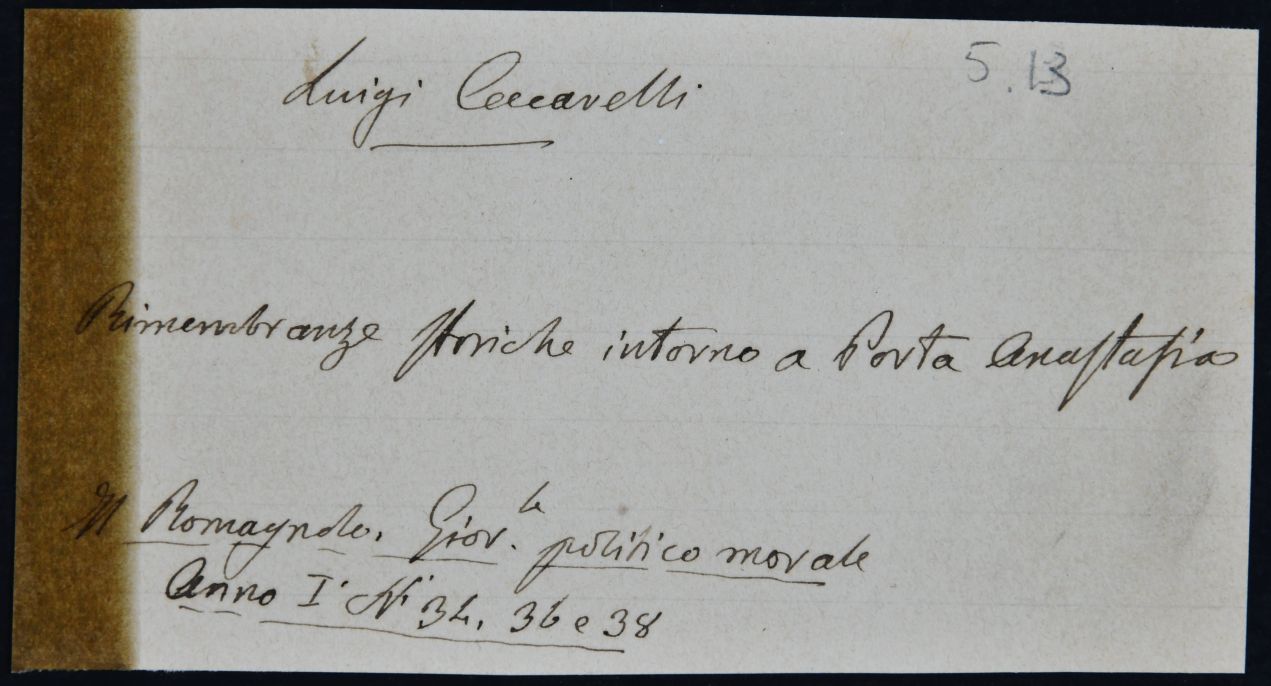 Luigi Ceccarelli
5.13
Rimembranze storiche intorno a Porta Anastasia
Il Romagnolo. Gior.le politico morale
Anno I° N° 34, 36 e 38